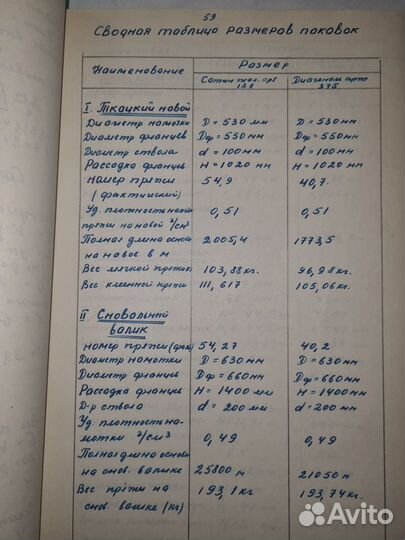 59
Сводная таблица размеров паковок
Наименование Размер
Сатин тик. арт 128 Диагональ арт 375
I. Ткацкий навой
Диаметр намотки D = 530 мм D = 530 мм
Диаметр фланцев Dф = 550 мм Dф = 550 мм
Диаметр ствола d = 100 мм d = 100 мм
Рассадка фланцев H = 1020 мм H = 1020 мм
номер пряжи 54,9 40,7.
(фактический)
Уд. плотность нам. 0,51 0,51
пряжи на навой г/см³
Полная длина основ 2005,4 1773,5
на навое в м
Вес мягкой пряжи 103,88 кг. 96,98 кг.
Вес клееной пряжи 111,617 105,06 кг.
II. Сновальный
валик
номер пряжи (фак) 54,27 40,2
Диаметр намотки D = 630 мм D = 630 мм
Диаметр фланцев Dф = 660 мм Dф = 660 мм
Рассадка фланцев H = 1400 мм H = 1400 мм
Д-р ствола d = 200 мм d = 200 мм
Уд. плотность на-
мотки г/см³ 0,49 0,49
Полная длина основы
на снов. валике 25800 м 21050 м
Вес пряжи на 193,1 кг 193,74 кг.
снов. валике (кг)
Avito